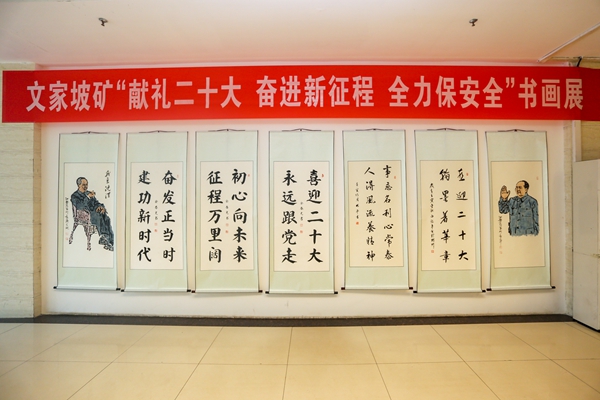 文家坡矿“献礼二十大 奋进新征程 全力保安全”书画展
奋发正当时
建功新时代
初心向未来
征程万里阔
喜迎二十大
永远跟党走
事忘名利心常泰
人得風流養精神
迎二十大
翰墨著華章